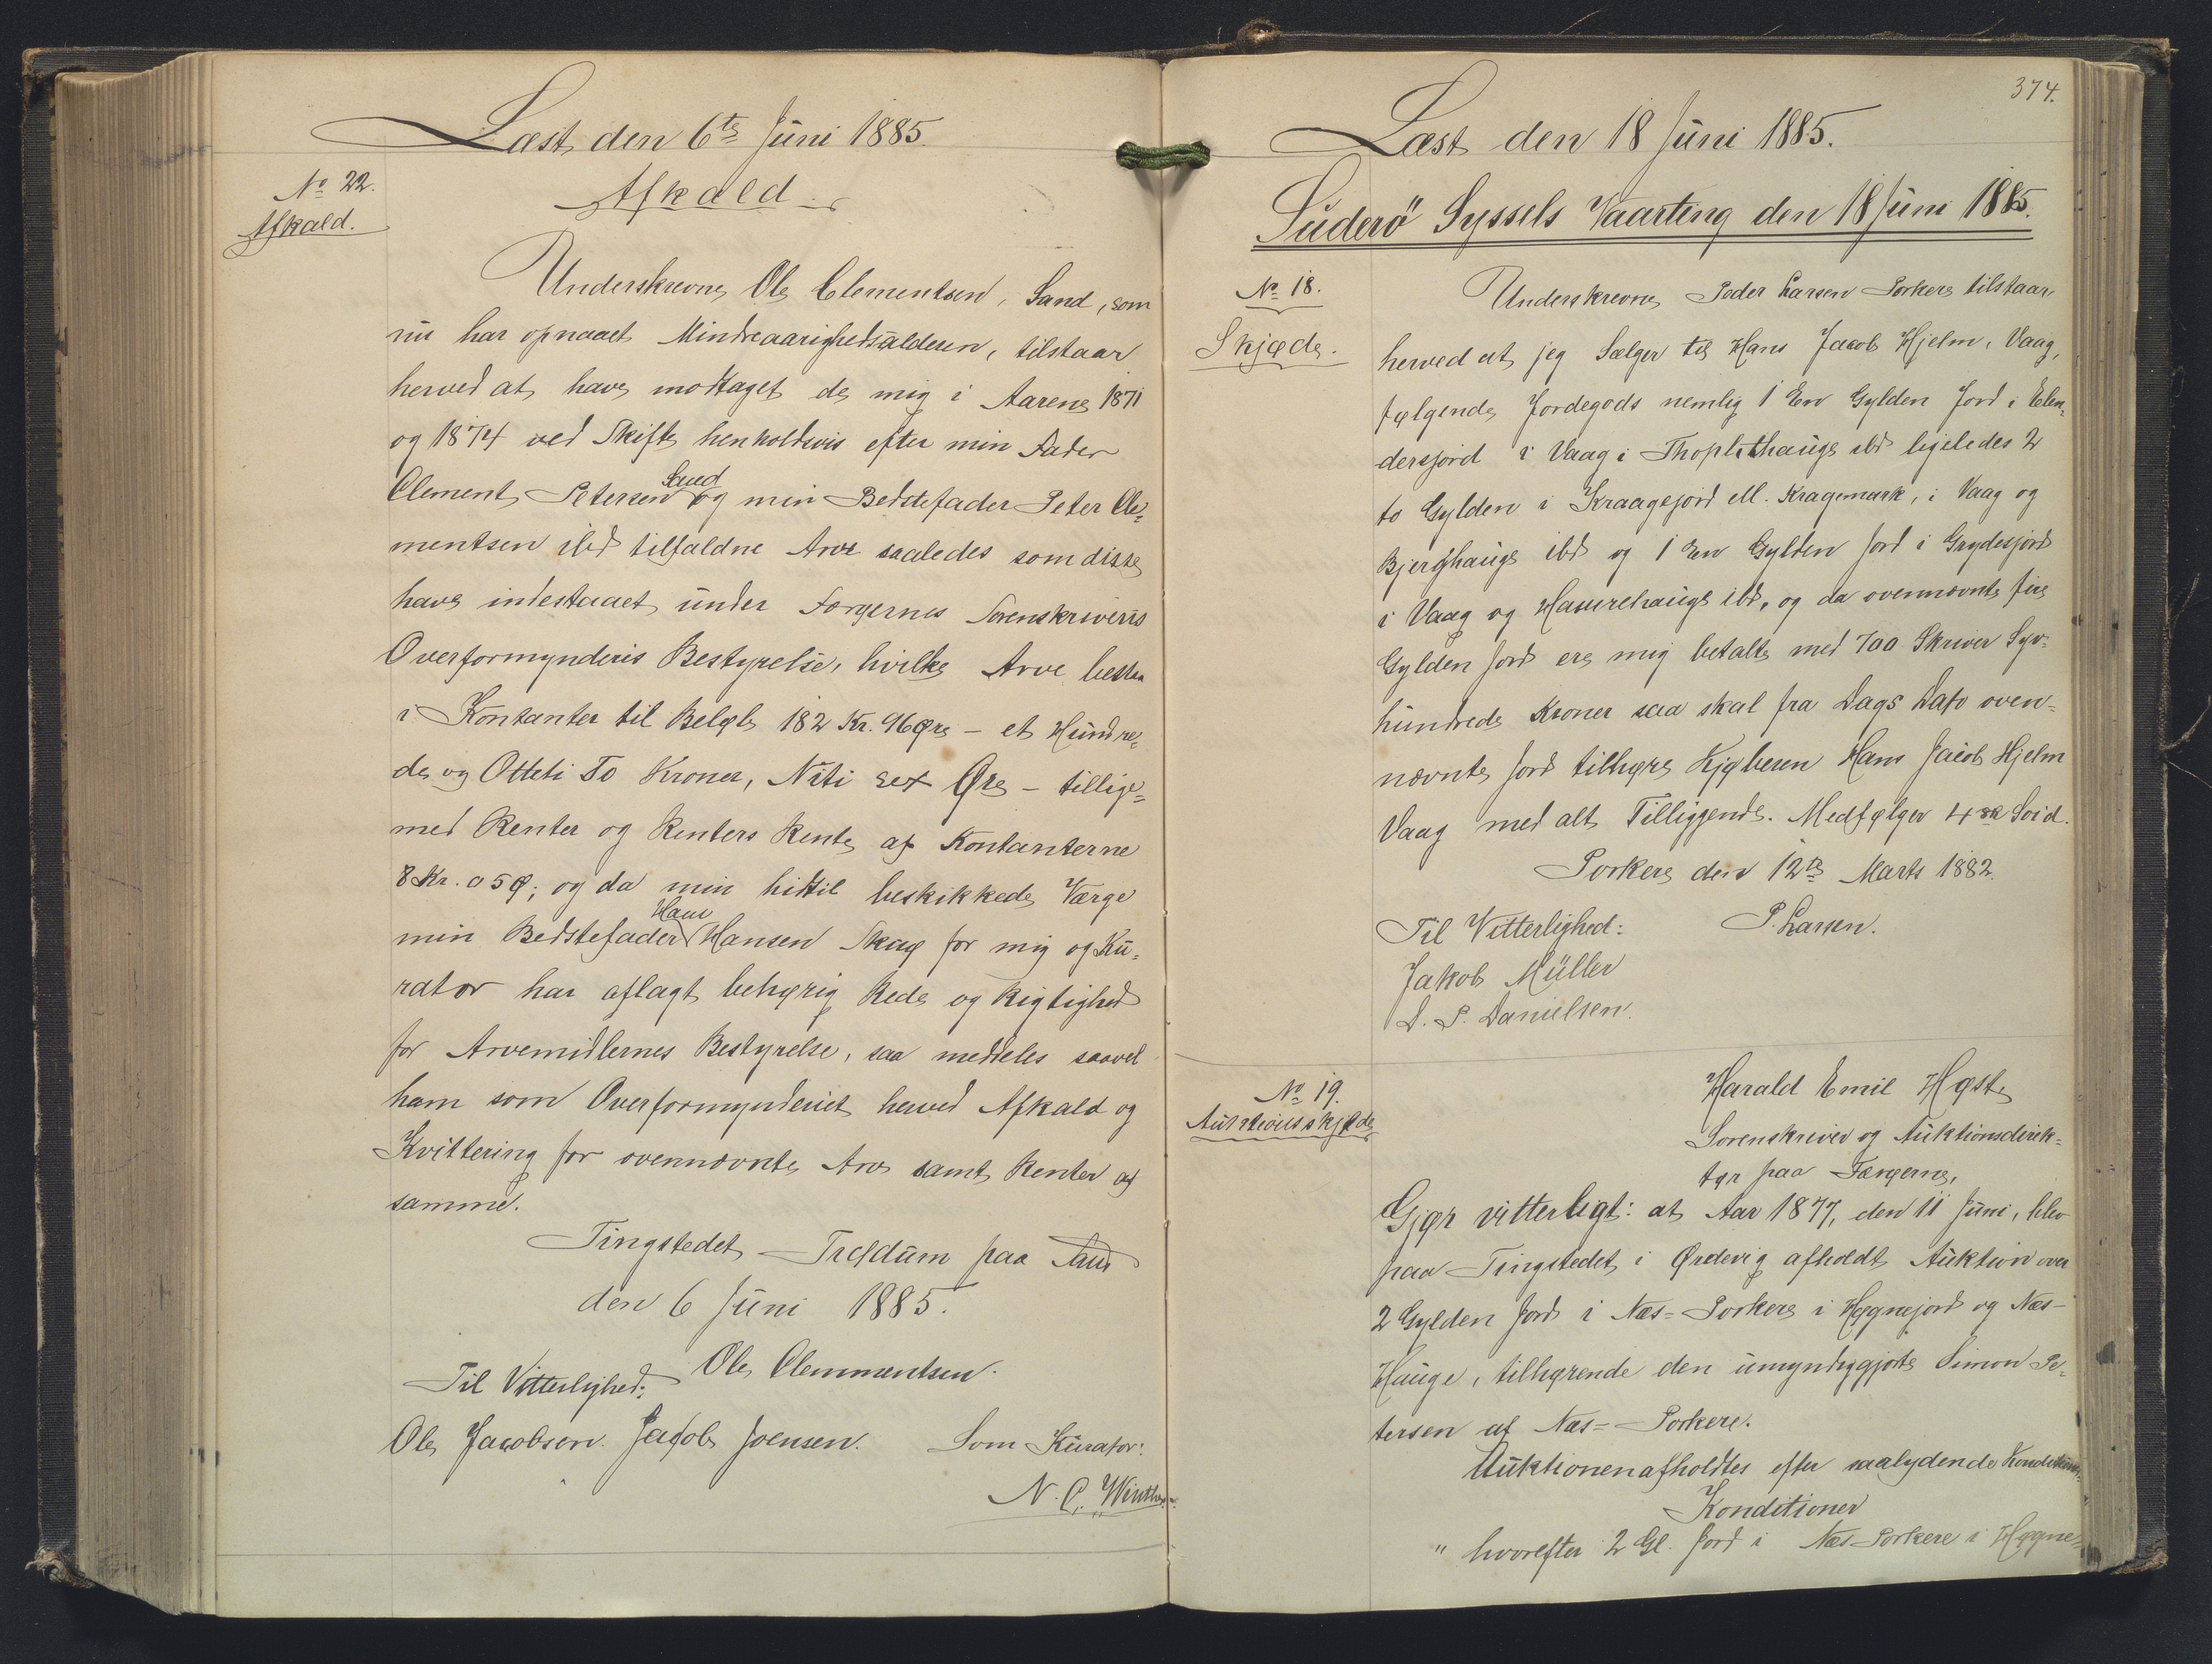 Læst den 6te Juni 1885.
No 22.
Afkald.
Afkald.
Underskrevne Ole Clementsen, Sand, som
nu har opnaaet Mindreaarighedsalderen, tilstaar
herved at have modtaget de mig i Aarene 1871
og 1874 ved Skifte henholdsvis efter min Fader
Clement Petersen Sand og min Bedstefader Peter Cle-
mentsen ibd tilfaldne Arve saaledes som disse
have indestaaet under Færøernes Sorenskriveris
Overformynderis Bestyrelse, hvilke Arve bestaa
i Kontanter til Beløb 182 Kr. 96 Øre - et Hundre-
de og Otteti To Kroner, Niti sex Øre - tillige-
med Renter og Renters Rente af Kontanterne
8 Kr. 05 Ø; og da min hidtil beskikkede Værge
min Bedstefader Hans Hansen Skaø for mig og Ku-
rator har aflagt behørig Rede og Rigtighed
for Arvemidlernes Bestyrelse, saa meddeles saavel
ham som Overformynderiet herved Afkald og
Kvittering for ovennævnte Arv samt Renter af
samme.
Tingstedet Trøldum paa Sand
den 6 Juni 1885.
Ole Clemmentsen.
Til Vitterlighed:
Ole Jacobsen. Jacob Joensen. Som Kurator:
N. C. Winther.
374.
Læst den 18 Juni 1885.
Suderö Syssels Vaarting den 18 Juni 1885.
No 18.
Skjøde.
Underskrevne Peder Larsen Porkere tilstaar
herved at jeg Sælger til Hans Jacob Hjelm, Vaag,
følgende Jordegods nemlig 1 En Gylden Jord i Elen-
dersjord i Vaag i hauge ibd ligeledes 2
to Gylden i Kraagejord ell. Kragemark, i Vaag og
Bjerghauge ibd og 1 En Gylden Jord i Grydesjord
i Vaag og hauge ibd, og da ovennævnte fire
Gylden Jord ere mig betalte med 700 Skriver Syv-
hundrede Kroner saa skal fra Dags Dato oven-
nævnte Jord tilhøre Kjøberen Hans Jacob Hjelm
Vaag med alt Tilliggende. Medfølger 4 Soid.
Porkere den 12te Marts 1882.
Til Vitterlighed: P. Larsen.
Jakob Müller
D. P. Danielsen.
No 19.
Auktionsskjøde
Harald Emil Høst,
Sorenskriver og Auktionsdirek-
tør paa Færøerne,
Gjør vitterligt: at Aar 1877, den 11 Juni, blev
paa Tingstedet i Ørdevig afholdt Auktion over
2 Gylden Jord i Næs-Porkere i Høgnejord og Næs-
Hauge, tilhørende den umyndiggjorte Simon Pe-
tersen af Næs-Porkere.
Auktionen afholdtes efter saalydende Konditioner
Konditioner
" hvorefter 2 Gl. Jord i Næs Porkere i Høgne-